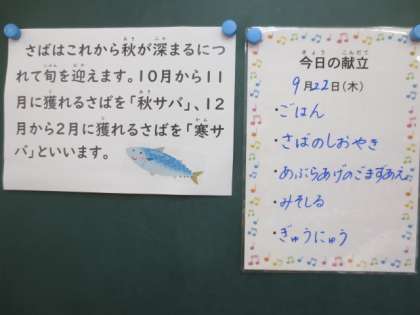 さばはこれから秋が深まるにつ
れて旬を迎えます。10月から11
月に獲れるさばを「秋サバ」、12
月から2月に獲れるさばを「寒サ
バ」といいます。
今日の献立
9月22日(木)
・ごはん
・さばのしおやき
・あぶらあげのごまずあえ
・みそしる
・ぎゅうにゅう